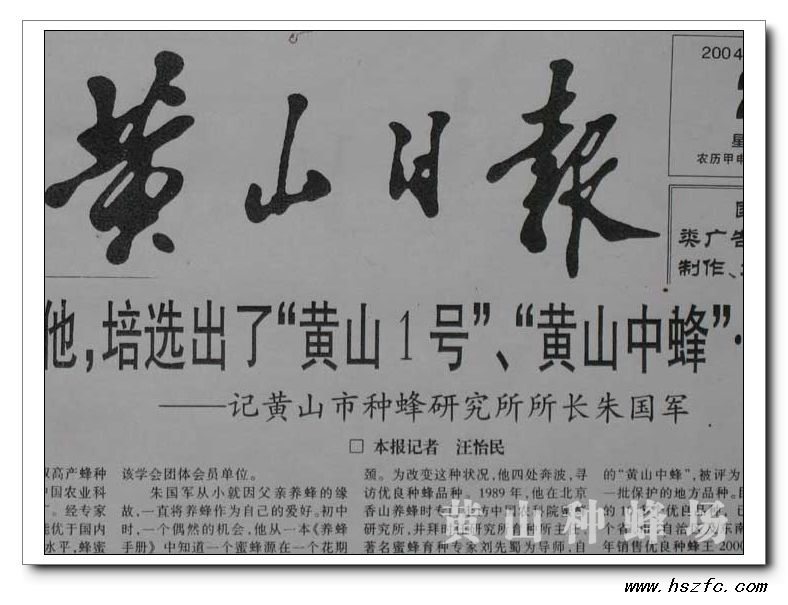 黄山日報
2004
星
农历甲申
类广告
制作、
他，培选出了“黄山1号”、“黄山中蜂”
——记黄山市种蜂研究所所长朱国军
□ 本报记者 汪怡民
高产蜂种
国农业科
。经专家
能优于国内
水平，蜂蜜
该学会团体会员单位。
朱国军从小就因父亲养蜂的缘
故，一直将养蜂作为自己的爱好。初中
时，一个偶然的机会，他从一本《养蜂
手册》中知道一个蜜蜂源在一个花期
颈。为改变这种状况，他四处奔波，寻
访优良种蜂品种。1989年，他在北京
香山养蜂时专
中国农科院蜜蜂
研究所，并拜时
研究所育种所主
著名蜜蜂育种专家刘先蜀为导师，自
的“黄山中蜂”，被评为
一批保护的地方品种。
年销售优良种蜂王2000
黄山种蜂场
www.hszfc.com